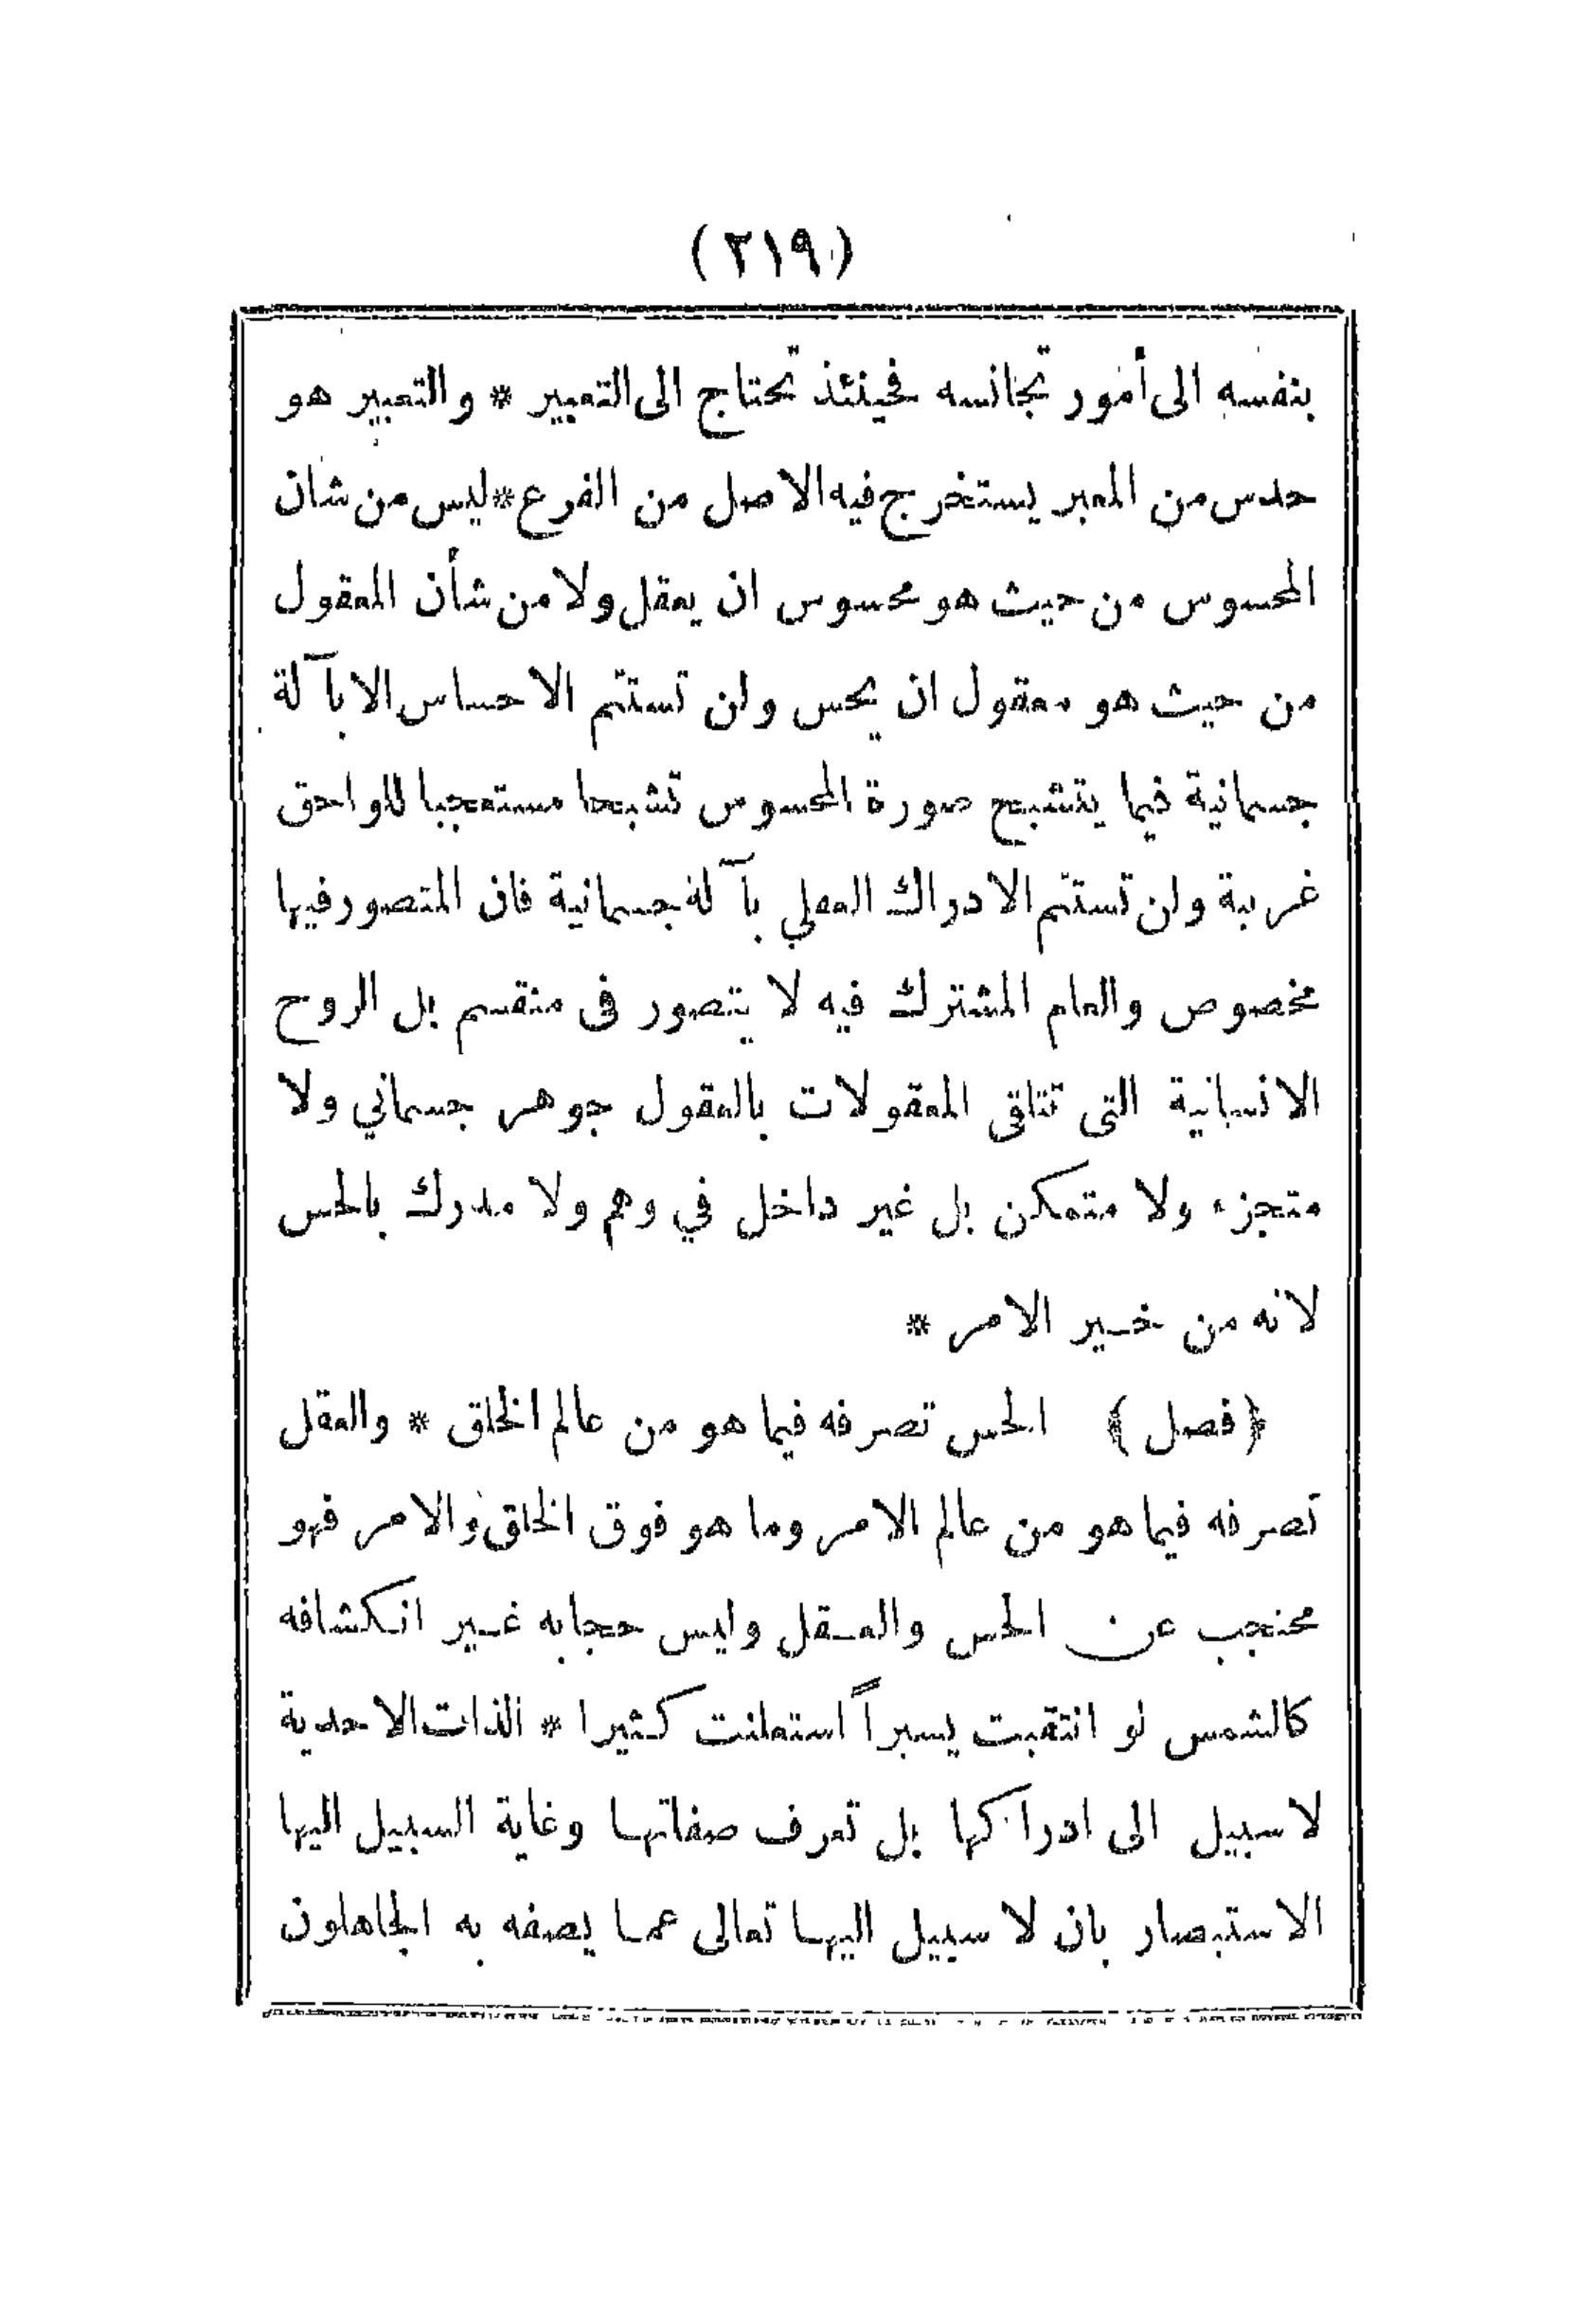 (٢١٩)
بنفسه الى أمور تجانسه فحينئذ تحتاج الى التعبير * والتعبير هو
حدس من المعبر يستخرج فيه الاصل من الفرع * ليس من شان
المحسوس من حيث هو محسوس ان يعقل ولا من شأن المعقول
من حيث هو معقول ان يحس ولن تستتم الاحساس الا بآلة
جسمانية فيما يتشبح صورة المحسوس تشبحا مستعجبا للواحق
غريبة ولن تستتم الادراك العقلي بآلة جسمانية فان المتصور فيها
مخصوص والعام المشترك فيه لا يتصور فى منقسم بل الروح
الانسانية التى تتلقى المعقولات بالعقول جوهر جسماني ولا
متجزء ولا متمكن بل غير داخل في وهم ولا مدرك بالحس
لانه من خير الامر *
﴿ فصل ﴾ الحس تصرفه فيما هو من عالم الخلق * والعقل
تصرفه فيما هو من عالم الامر وما هو فوق الخلق والامر فهو
محنجب عن الحس والعقل وليس حجابه غير انكشافه
كالشمس لو انتقبت يسبراً استعلنت كثيرا * الذات الاحدية
لا سبيل الى ادراكها بل تعرف صفاتها وغاية السبيل اليها
الاستبصار بان لا سبيل اليها تعالى عما يصفه به الجاهلون